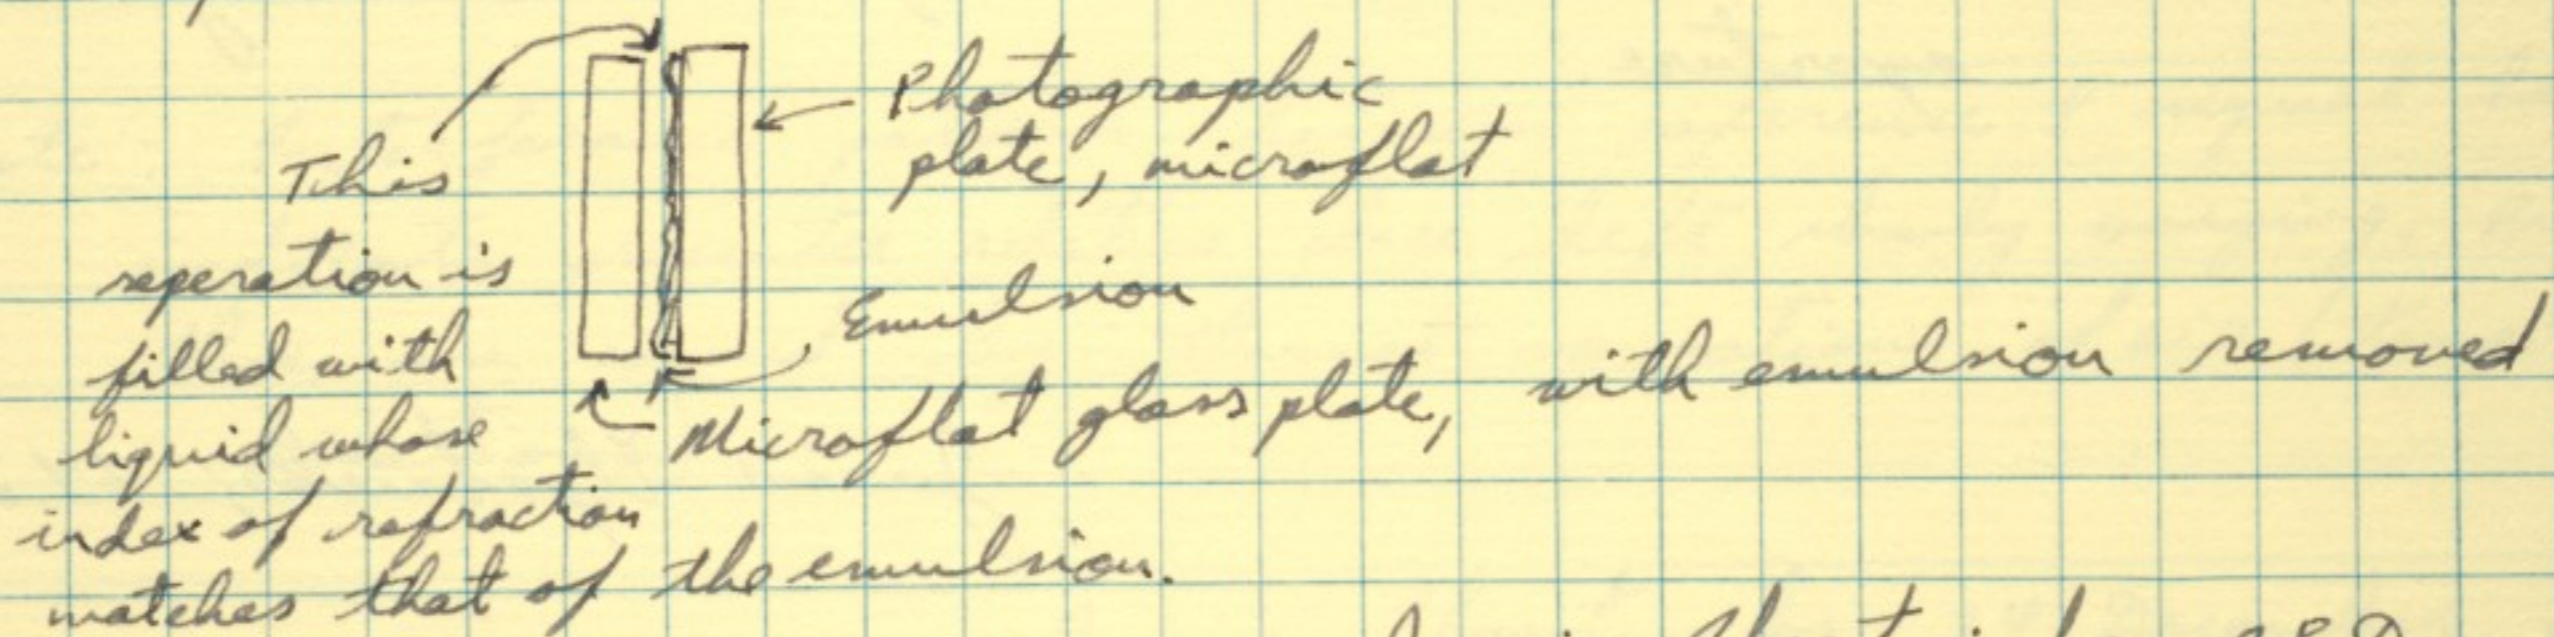 Photographic
plate, microflat
This
seperation is
filled with
liquid whose
index of refraction
matches that of the emulsion.
Emulsion
Microflat glass plate, with emulsion removed